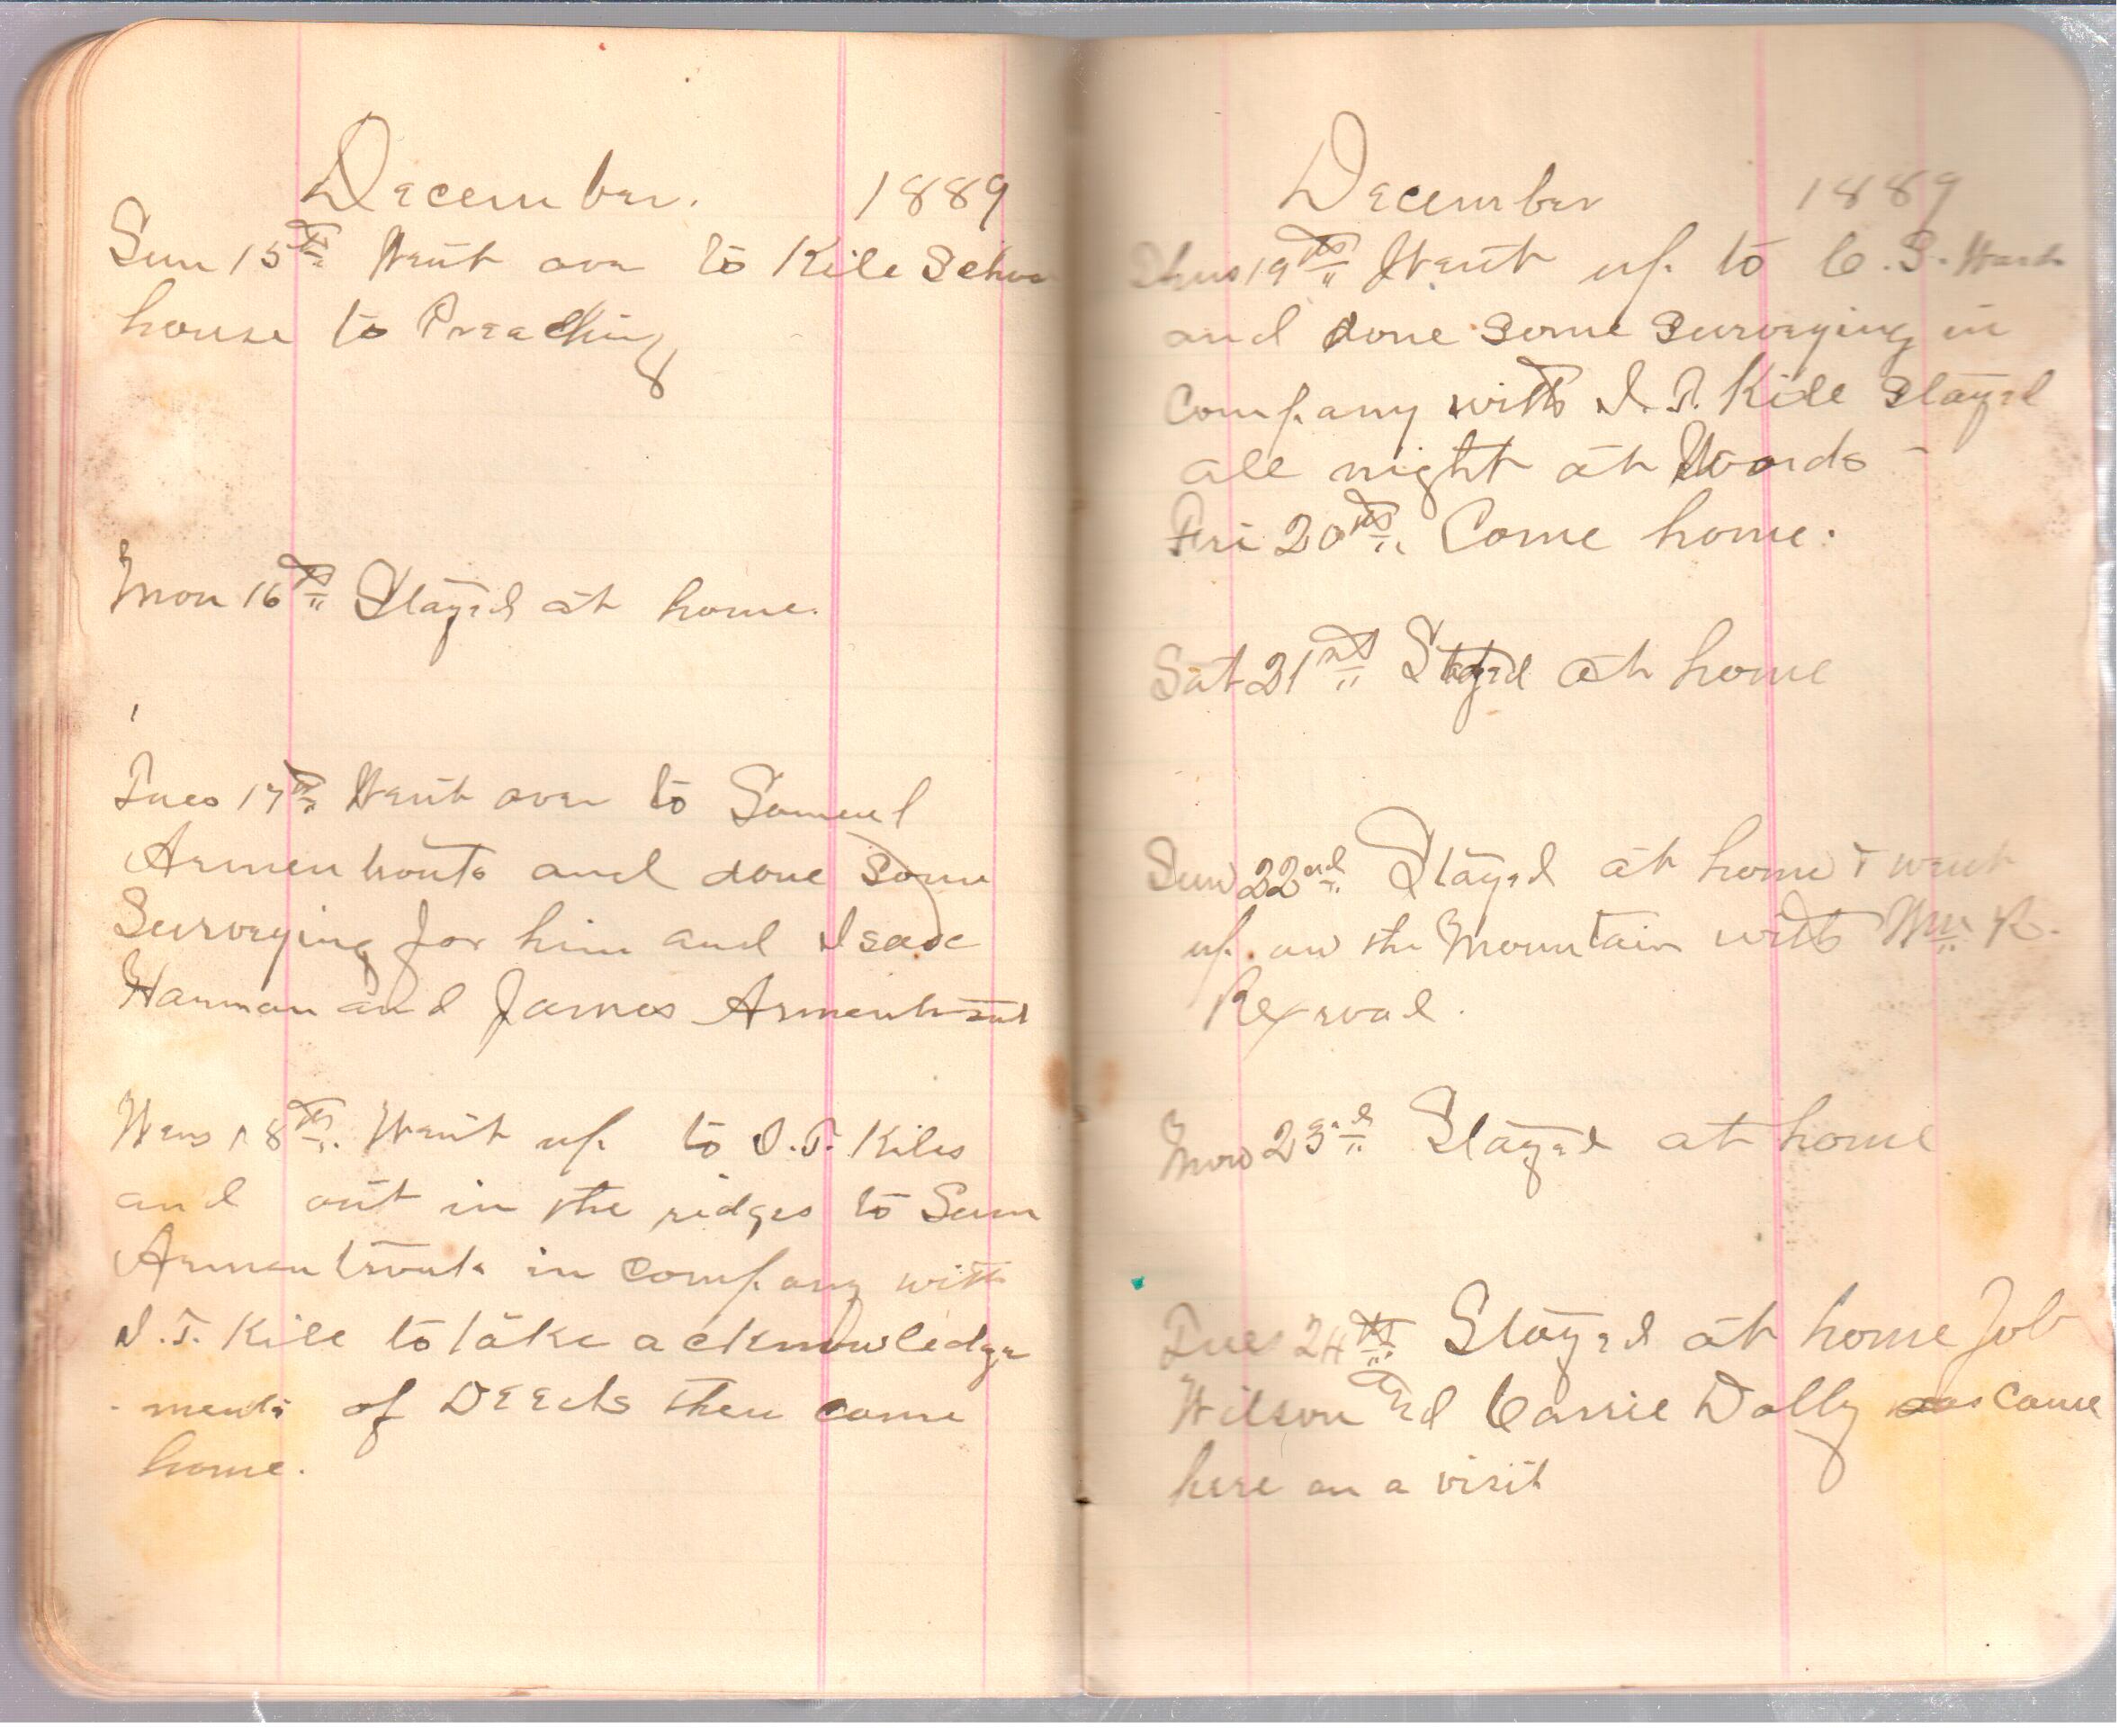 December. 1889
Sun 15th Went over to Kile School
house to Preaching
Mon 16th Stayed at home.
Tues 17th Went over to Samuel
Armentrouts and done some
Surveying for him and Isaac
Harman and James Armentrout
Wens 18th. Went up to I. T. Kiles
and out in the ridges to Sam
Armentrouts in company with
I. T. Kile to take acknowledge
-ments of Deeds then came
home.
December 1889
Thus 19th Went up to C. S. Wards
and done some surveying in
Company with I. T. Kile Stayed
all night at Wards -
Fri 20th. Come home.
Sat 21st Stayed at home
Sun 22nd Stayed at home & went
up on the Mountain with Wm R.
Rexroad.
Mon 23rd Stayed at home
Tues 24th Stayed at home Job
Wilson and Carrie Dolly came
here on a visit